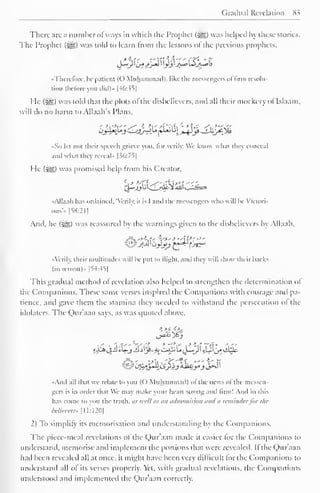 Gradual Revelation 83
There are a number of ways in which the Prophet (ﷺ) was helped by these stories.
The Prophet (ﷺ) was told to learn from the lessons of the previous prophets,
«Therefore, be patient (O Muḥammad), like the messengers of firm resolu-
tion (before you did)» [46:35]
He (ﷺ) was told that the plots of the disbelievers, and all their mockery of Islaam,
will do no harm to Allaah's Plans,
«So let not their speech grieve you, for verily We know what they conceal
and what they reveal» [36:76]
He (ﷺ) was promised help from his Creator,
«Allaah has ordained, 'Verily, it is I and the messengers who will be Victori-
ous'» [58:21]
And, he (ﷺ) was reassured by the warnings given to the disbelievers by Allaah,
«Verily, their multitudes will be put to flight, and they will show their backs
(in retreat)» [54:45]
This gradual method of revelation also helped to strengthen the determination of
the Companions. These same verses inspired the Companions with courage and pa-
tience, and gave them the stamina they needed to withstand the persecution of the
idolaters. The Qur'aan says, as was quoted above,
«And all that we relate to you (O Muḥammad) of the news of the messen-
gers is in order that We may make your heart strong and firm! And in this
has come to you the truth, as well as an admonition and a reminder for the
believers» [11:120]
2) To simplify its memorisation and understanding by the Companions.
The piece-meal revelations of the Qur'aan made it easier for the Companions to
understand, memorise and implement the portions that were revealed. If the Qur'aan
had been revealed all at once, it might have been very difficult for the Companions to
understand all of its verses properly. Yet, with gradual revelations, the Companions
understood and implemented the Qur'aan correctly.